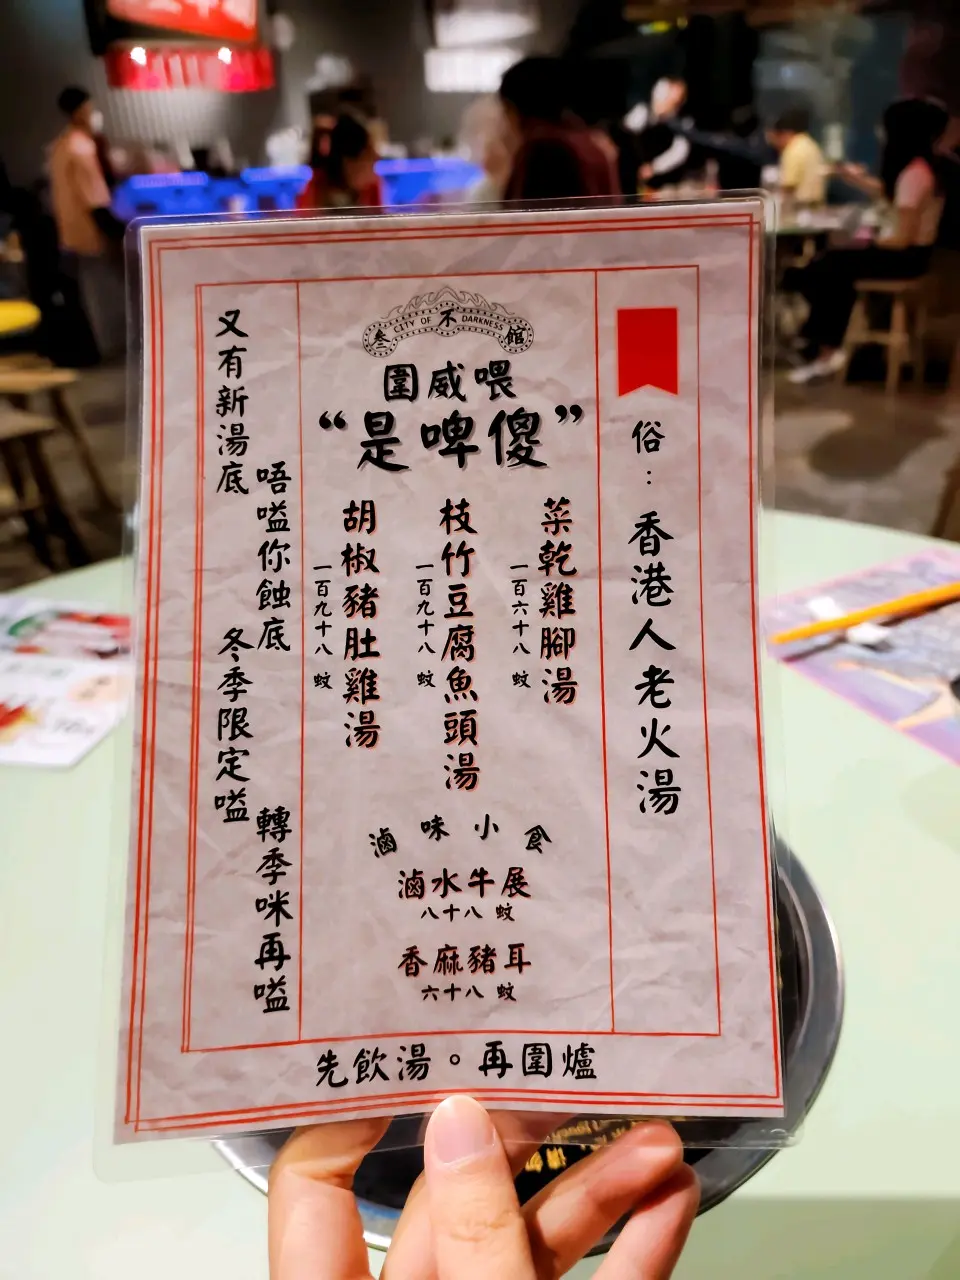 俗：香港人老火湯
叁不館
CITY OF DARKNESS
圍威喂
“是啤傻”
菜乾雞腳湯
一百六十八蚊
枝竹豆腐魚頭湯
一百九十八蚊
胡椒豬肚雞湯
一百九十八蚊
滷味小食
滷水牛展
八十八蚊
香麻豬耳
六十八蚊
又有新湯底
唔嗌你蝕底
冬季限定嗌
轉季咪再嗌
先飲湯。再圍爐